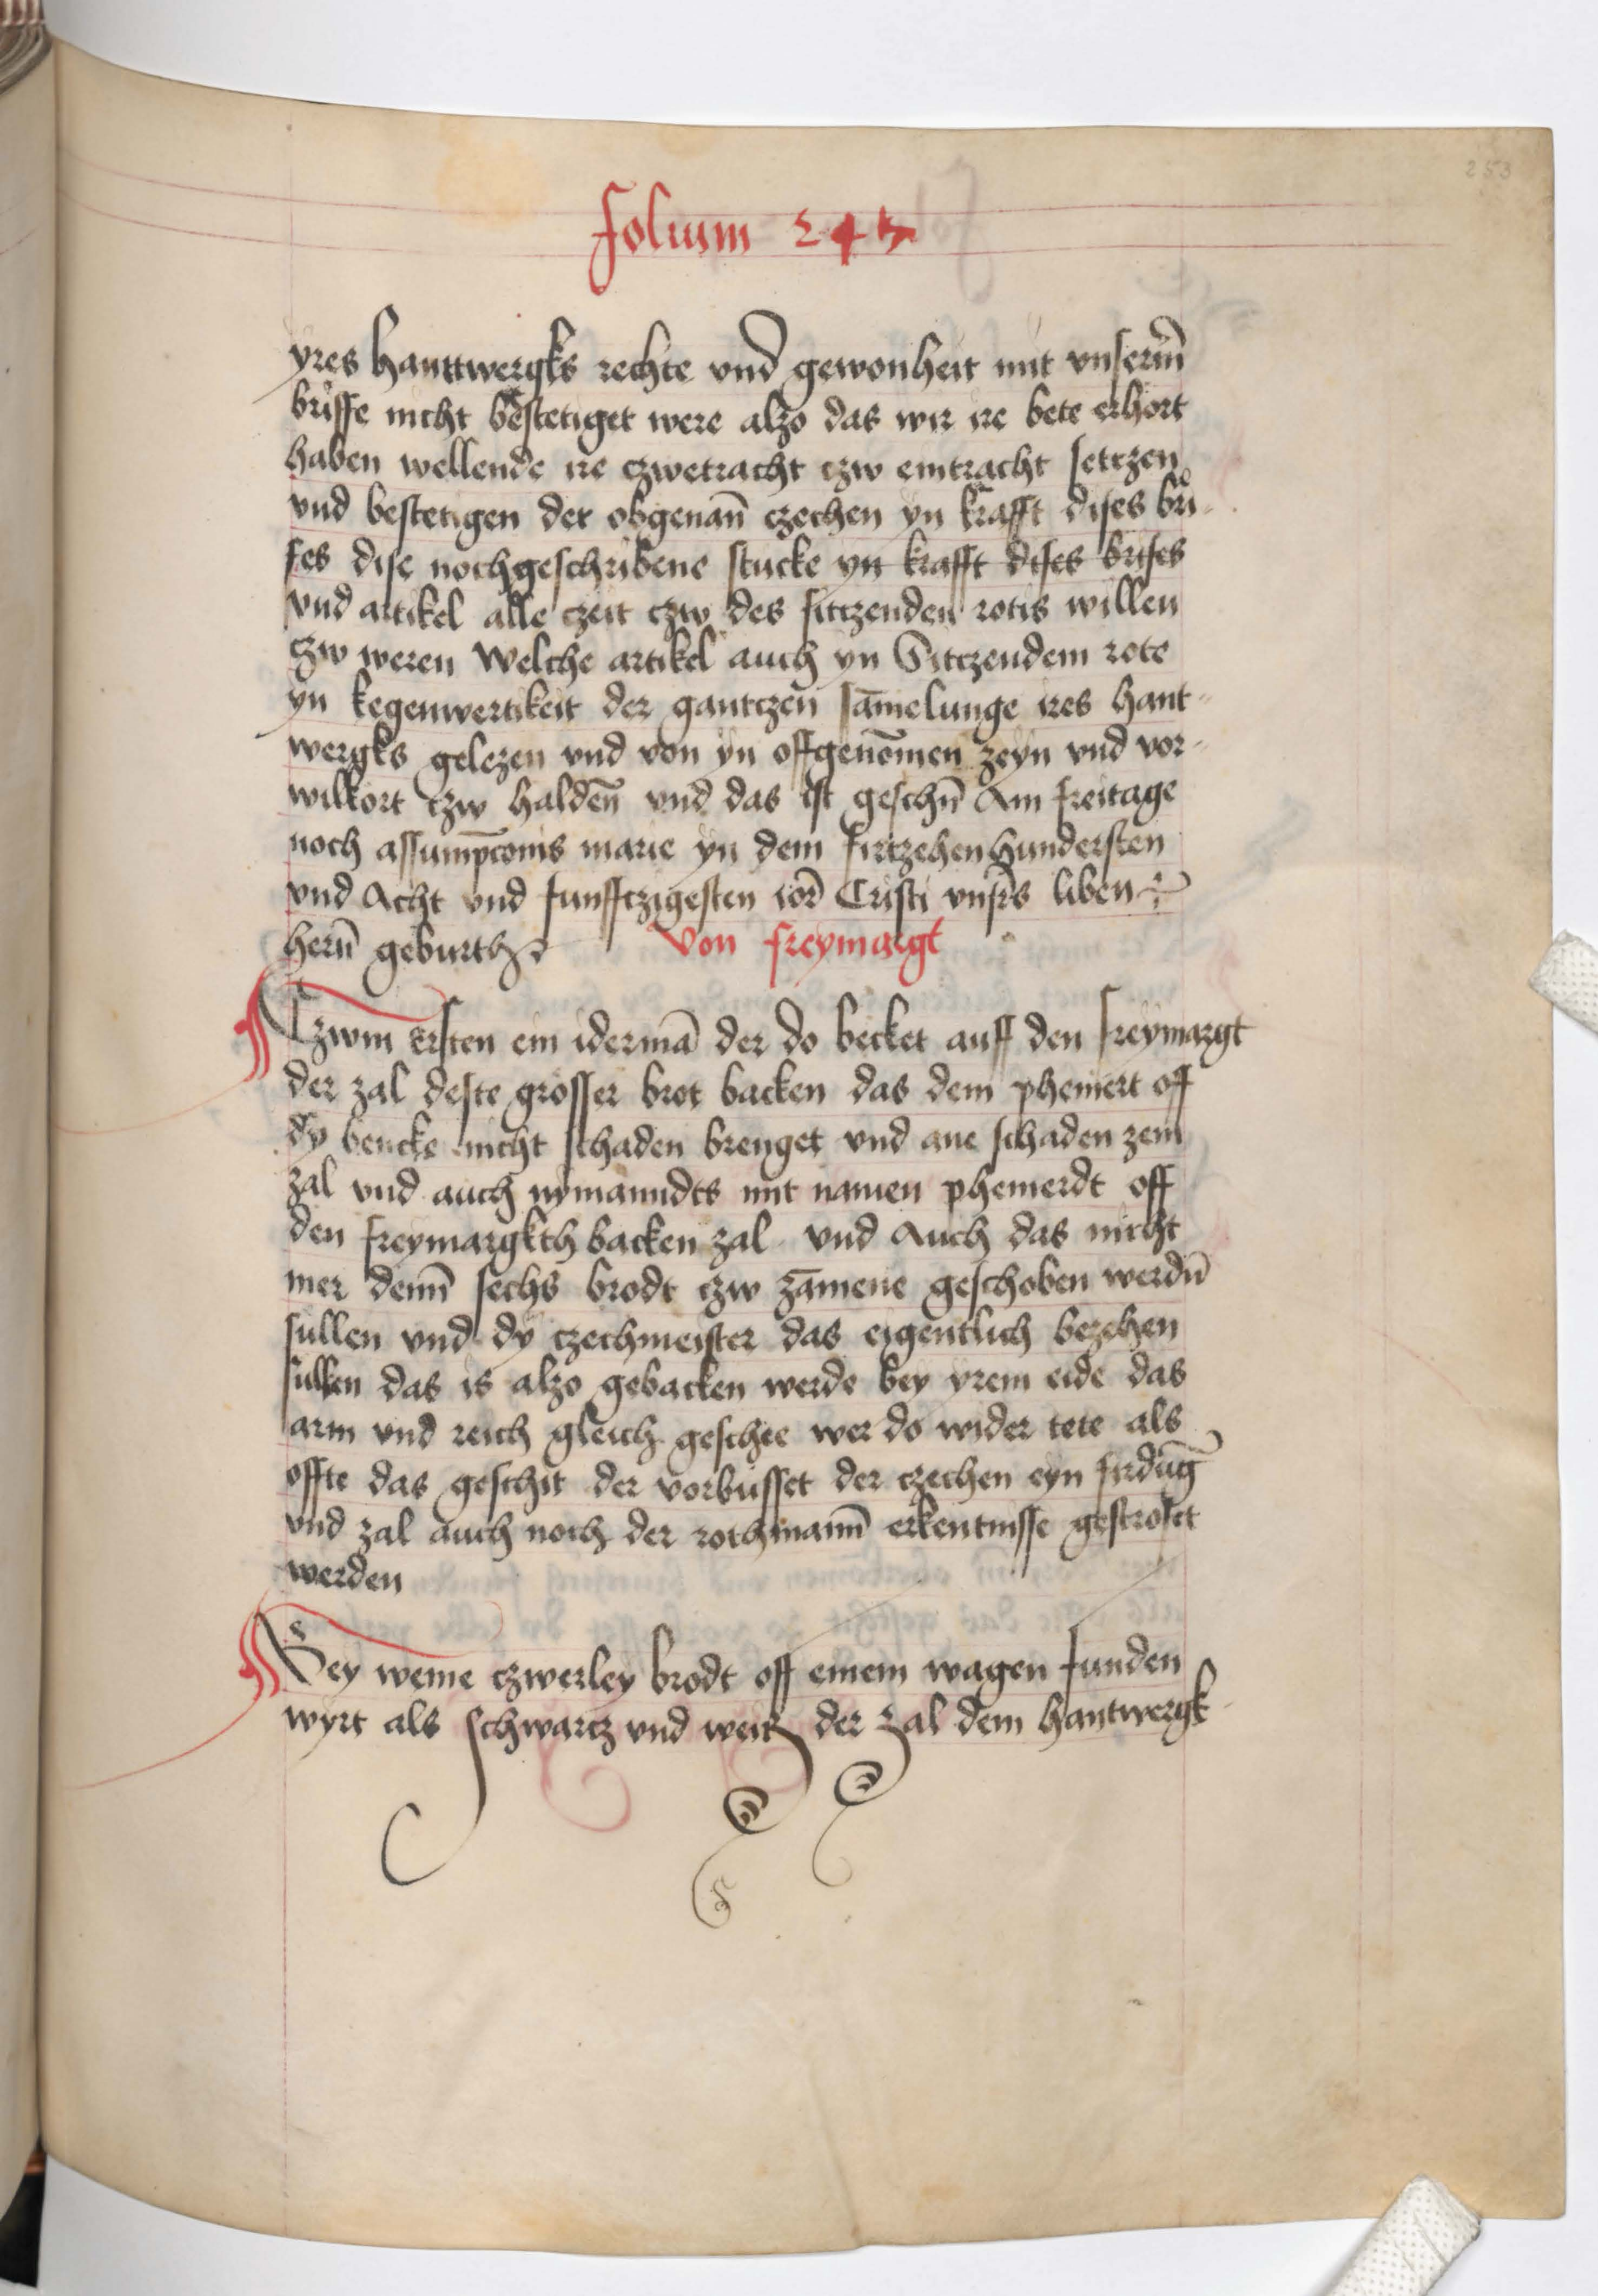 253
Folium 245
yres Hanttwergks rechte vnd gewonheit mit vnserm̄
briffe nicht bestetiget were alzo das wir ire bete erhort
haben wellende ire czwetracht czw eintracht setczen
vnd bestetigen der obgenan̄ czechen yn krafft dises bri-
fes dise nochgeschribene stucke yn krafft dises brifes
vnd artikel alle czeit czw des sitczenden rotis willen
czw weren Welche artikel auch yn Sitczendem rote
yn kegenwertikeit der gantczen sām̄elunge ires hant-
wergks gelezen vnd von yn offgenōmen zeyn vnd vor-
wilkort czw halden̄ vnd das ist geschn̄ Am freitage
noch assumpc̄onis marie yn dem firtzehenhundersten
vnd Acht vnd funfftzigesten ior̄ Cristi vnsr̄s liben
hern̄ geburth
Von freymargt
Czwm ersten ein idermā der do becket auff den freymargt
der zal deste grosser brot backen das dem pheniert off
dy bencke nicht schaden brenget vnd ane schaden zein
zal vnd auch nymanndts mit namen phenierdt off
den freymargkth backen zal vnd Auch das nicht
mer denn̄ sechs brodt czw zāmene geschoben werdn̄
sullen vnd dy czechmeister das eigentlich bezehen
sullen das is alzo gebacken werde bey yrem eide das
arm vnd reich gleich geschee wer do wider tete als
offte das geschit der vorbusset der czechen eyn firdūg
vnd zal auch noch der rothmann̄ erkentnisse gestrofet
werden
Bey weme czwerley brodt off einem wagen funden
wyrt als schwartz vnd weitz der zal dem hantwergk